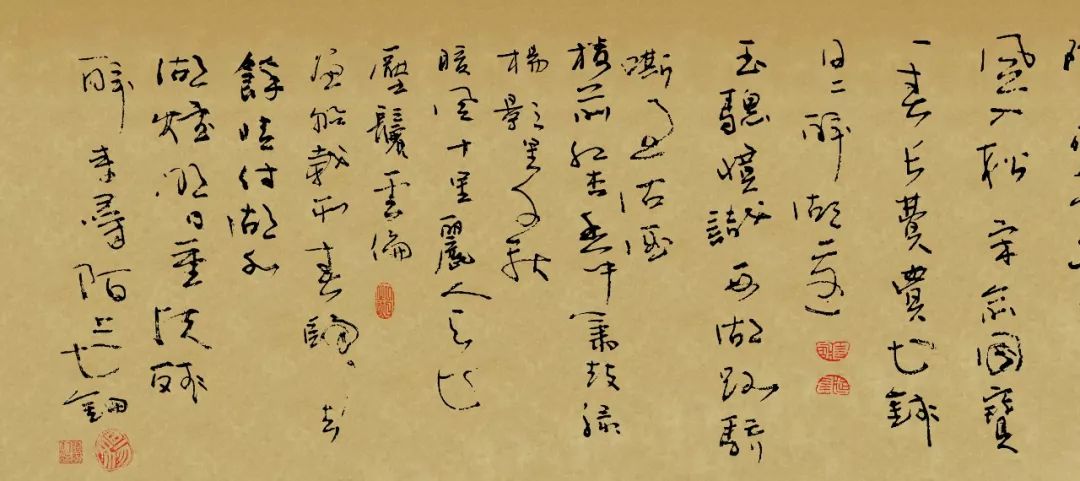 風入松 宋俞國寶
一春长費買花錢
日〻醉湖邊
玉驄慣識西湖路驕
嘶過沽酒
樓前紅杏香中簫鼓綠
楊影里
暖風十里麗人天花
壓鬢雲偏
畫船載取春歸去
餘情付湖水
湖煙明日重扶殘
醉來尋陌上花鈿